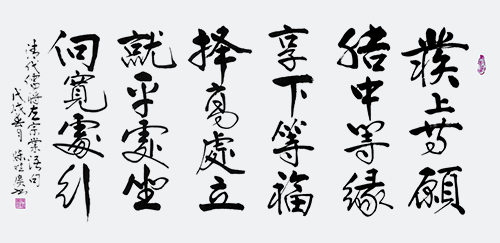 發上等願
結中等緣
享下等福
择高處立
就平處坐
向寬處行
清代儒將左宗棠語句
戊戌春月